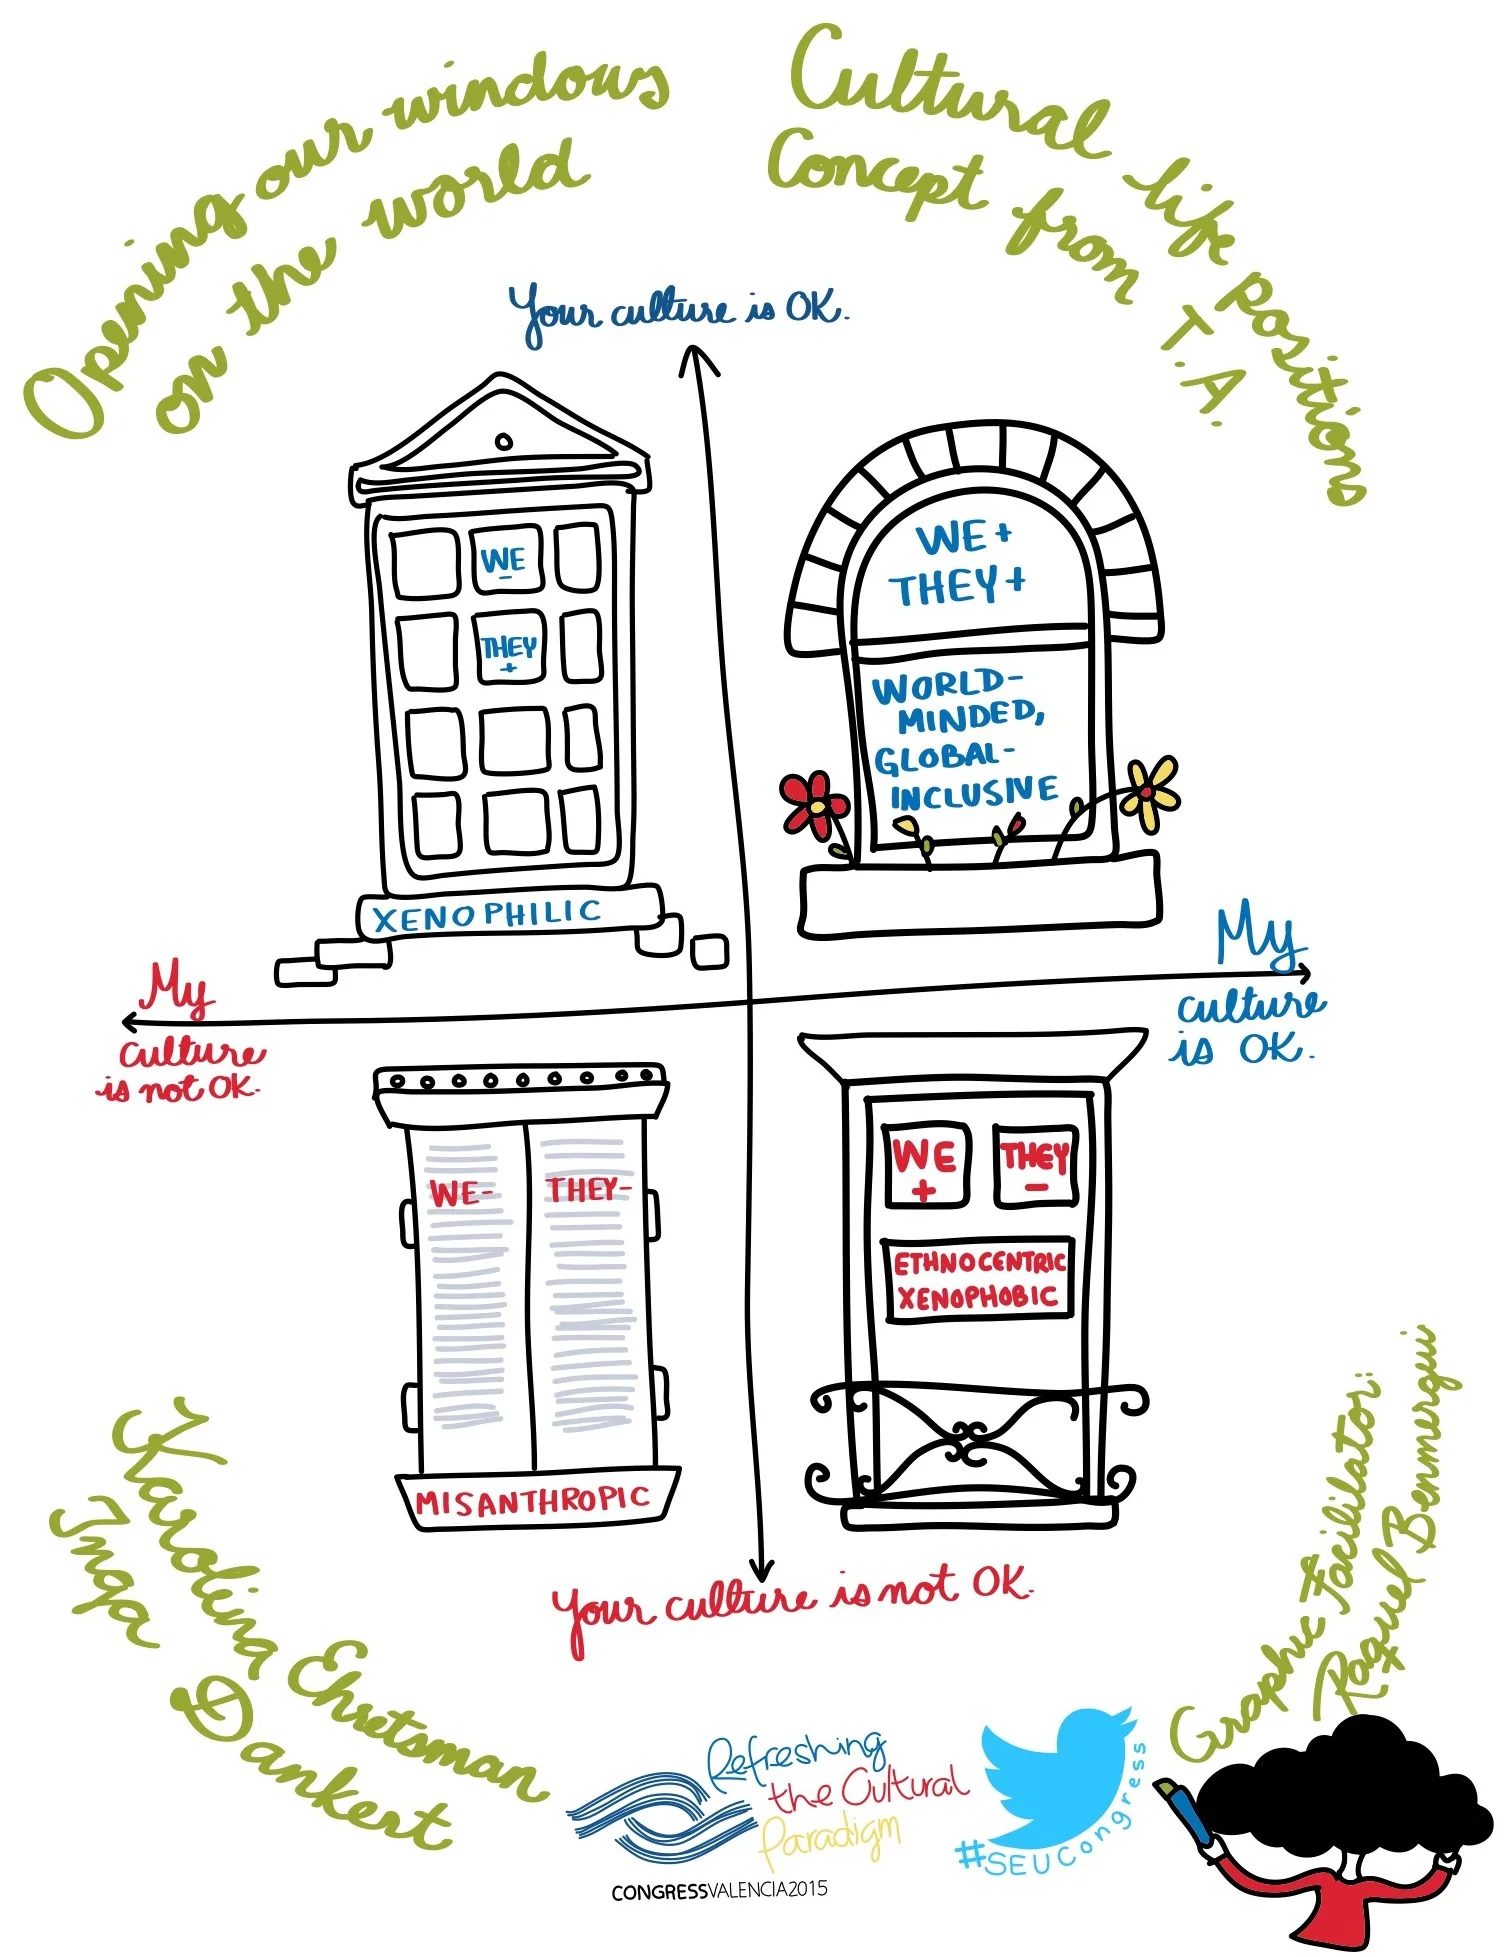 Opening our windows
on the world
Cultural life positions
Concept from T.A.
Your culture is OK.
WE
-
THEY
+
XENOPHILIC
WE +
THEY +
WORLD-
MINDED,
GLOBAL-
INCLUSIVE
My
culture
is not OK.
My
culture
is OK.
WE-
THEY-
MISANTHROPIC
WE
+
THEY
-
ETHNOCENTRIC
XENOPHOBIC
Your culture is not OK.
Karolina Ehretsman
Inga Dankert
Graphic Facilitator:
Raquel Benmergui
Refreshing
the Cultural
Paradigm
CONGRESSVALENCIA2015
#SEUCongress